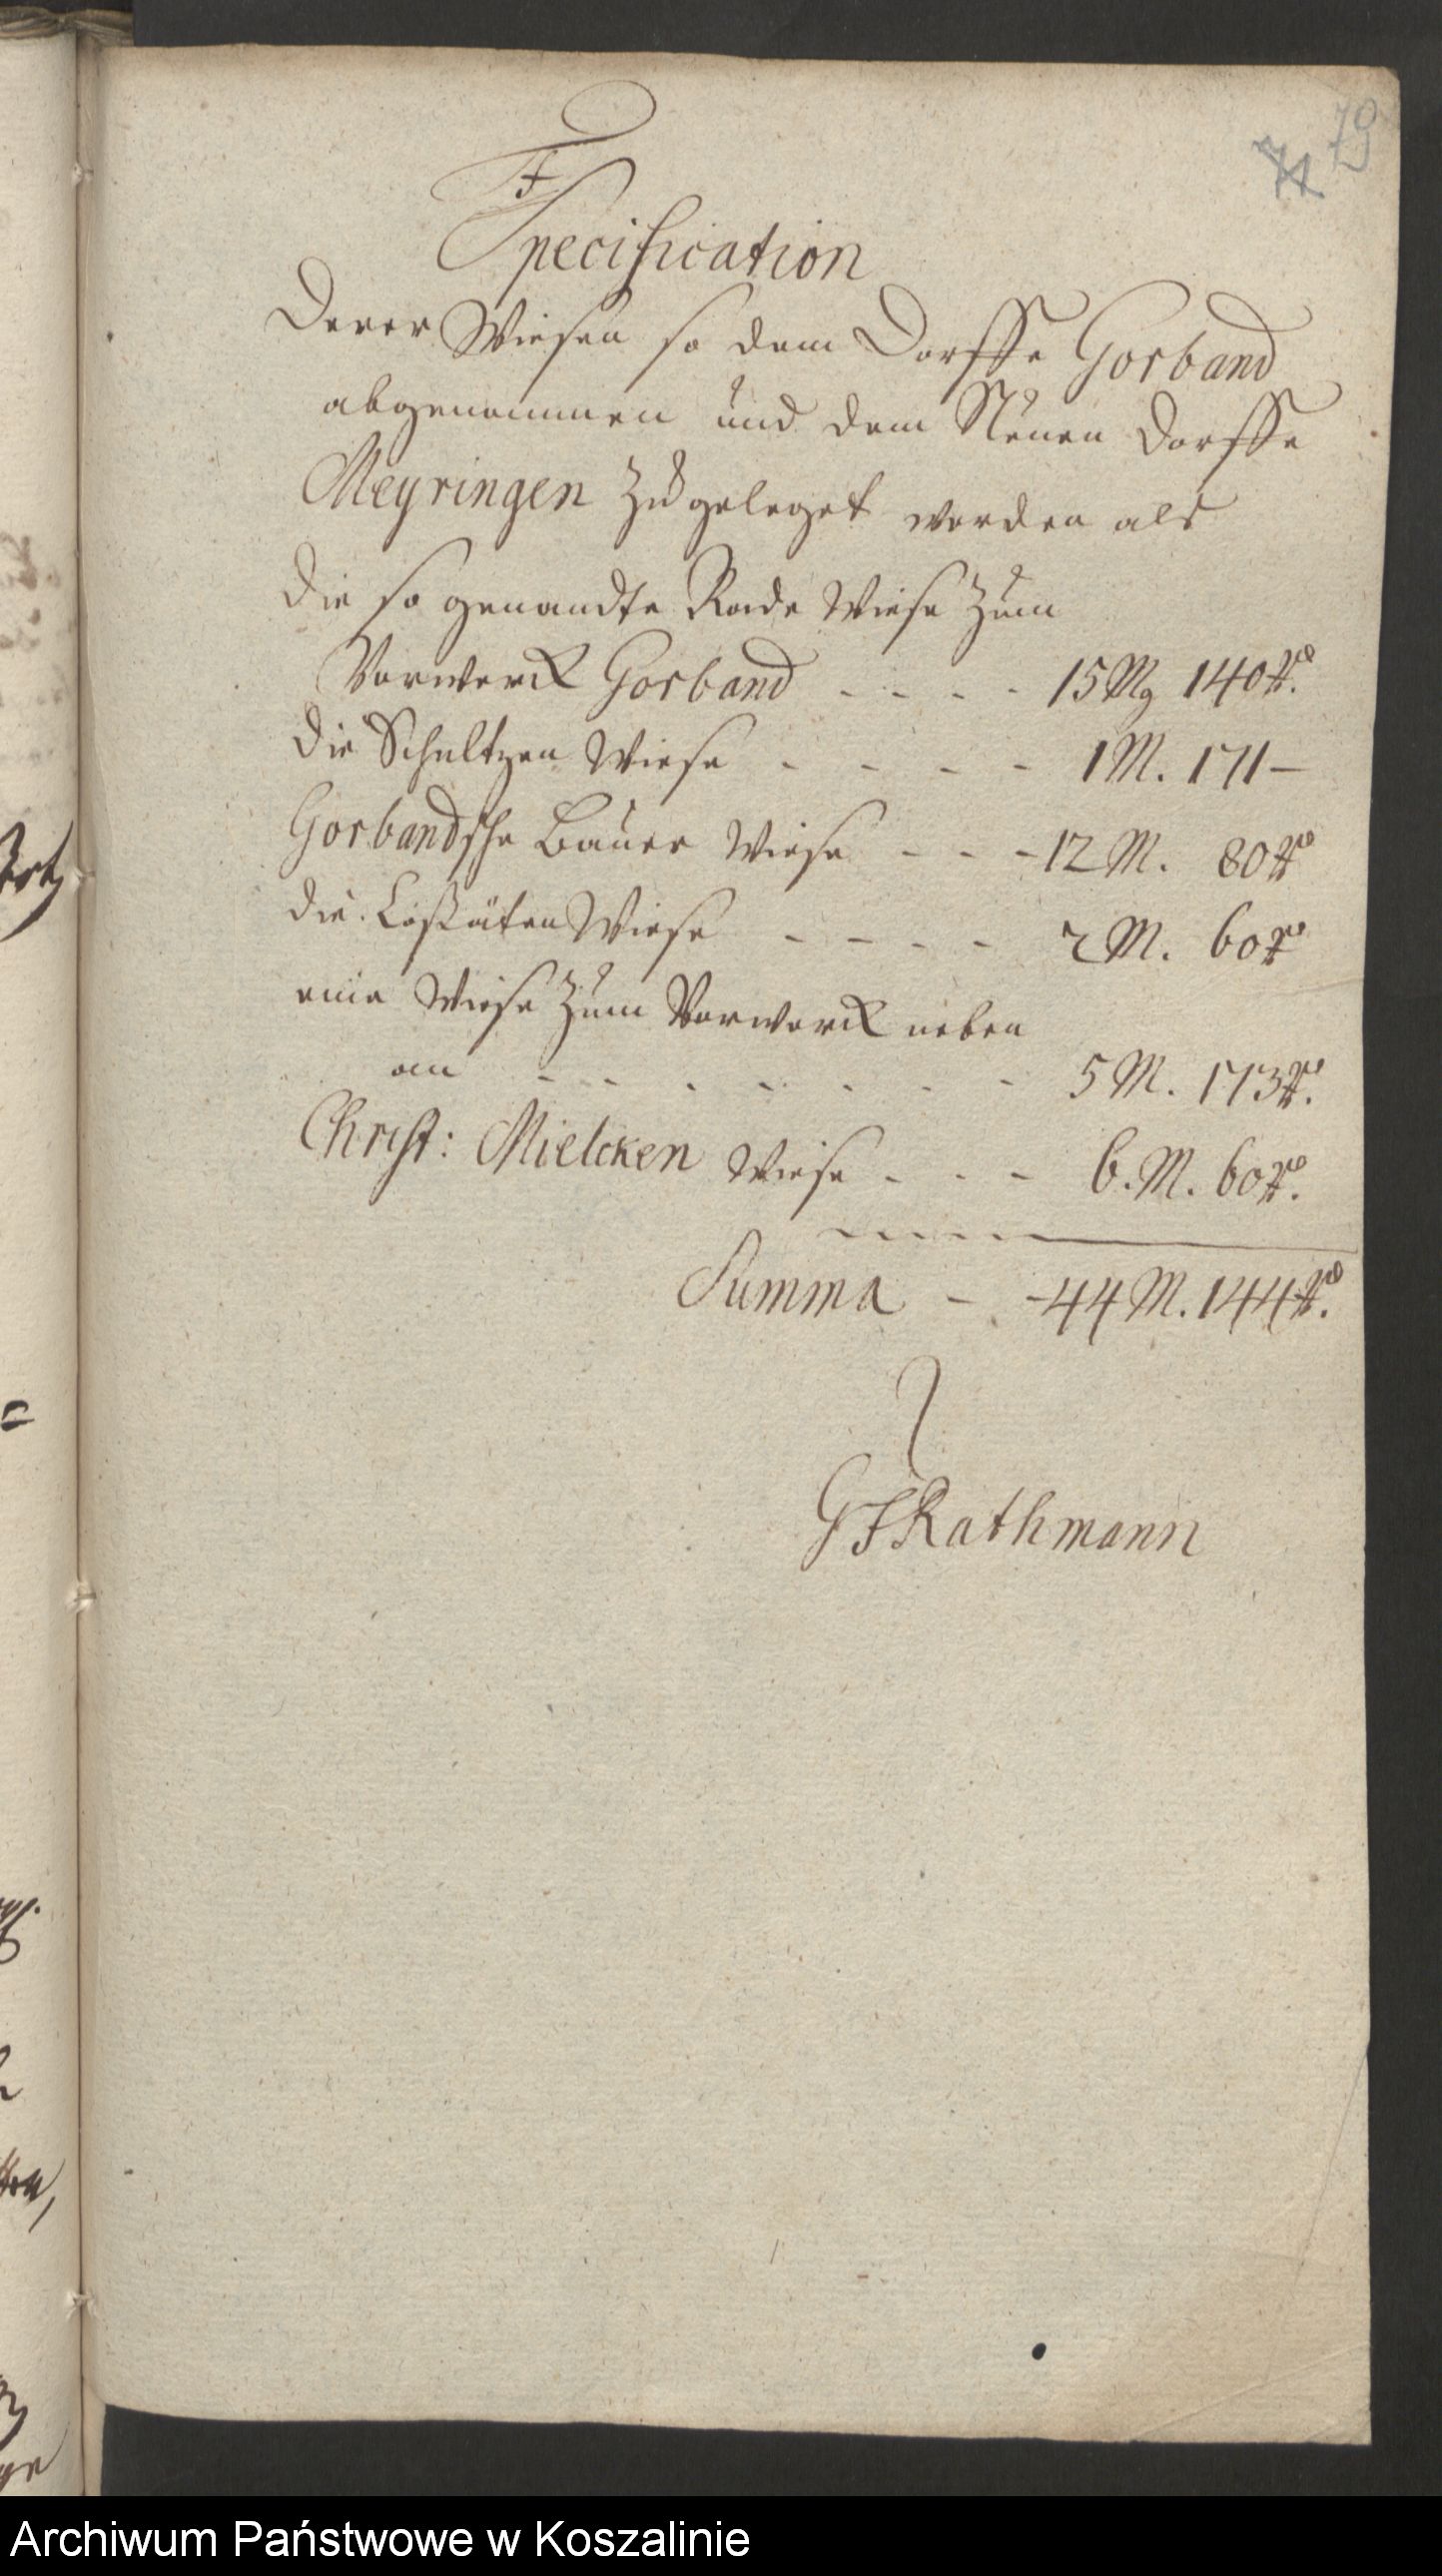 79
71
Specification
Derer Wiesen so dem Dorffe Gorband
abgenommen und dem Neuen Dorffe
Meyringen zugeleget worden als
die so genandte Rade Wiese zum
Vorwerck Gorband - - - - 15 Mg 140 R.
die Schultzen Wiese - - - - 1 M. 171 –
Gorbandsche Bauer Wiese - - - 12 M. 80 R
die Coßäten Wiese - - - - 2 M. 60 R
eine Wiese zum Vorwerck neben
an - - - - - - - 5 M. 173 R.
Christ: Mielcken Wiese - - - 6. M. 60 R.
Summa - - 44 M. 144 R.
GFRathmann
Archiwum Państwowe w Koszalinie